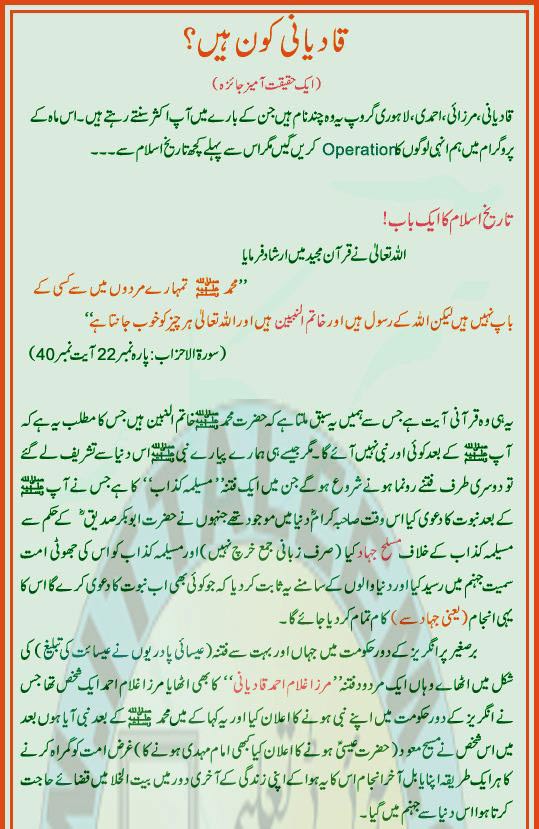 قادیانی کون ہیں؟
(ایک حقیقت آمیز جائزہ)
قادیانی، مرزائی، احمدی، لاہوری گروپ یہ وہ چند نام ہیں جن کے بارے میں آپ اکثر سنتے رہتے ہیں۔ اس ماہ کے
پروگرام میں ہم انہی لوگوں کا Operation کریں گیں مگر اس سے پہلے کچھ تاریخ اسلام سے۔۔۔
تاریخ اسلام کا ایک باب!
اللہ تعالیٰ نے قرآن مجید میں ارشاد فرمایا
”محمد ﷺ تمہارے مردوں میں سے کسی کے
باپ نہیں ہیں لیکن اللہ کے رسول ہیں اور خاتم النبیین ہیں اور اللہ تعالیٰ ہر چیز کو خوب جانتا ہے“
(سورۃ الاحزاب: پارہ نمبر 22 آیت نمبر 40)
یہ ہی وہ قرآنی آیت ہے جس سے ہمیں یہ سبق ملتا ہے کہ حضرت محمد ﷺ خاتم النبین ہیں جس کا مطلب یہ ہے کہ
آپ ﷺ کے بعد کوئی اور نبی نہیں آئے گا۔ مگر جیسے ہی ہمارے پیارے نبی ﷺ اس دنیا سے تشریف لے گئے
تو دوسری طرف فتنے رونما ہونے شروع ہو گے جن میں ایک فتنہ ”مسیلمہ کذاب“ کا ہے جس نے آپ ﷺ
کے بعد نبوت کا دعوی کیا اس وقت صاحبہ کرامؓ دنیا میں موجود تھے جنہوں نے حضرت ابوبکر صدیقؓ کے حکم سے
مسیلمہ کذاب کے خلاف مسلح جہاد کیا (صرف زبانی جمع خرچ نہیں) اور مسیلمہ کذاب کو اس کی جھوٹی امت
سمیت جہنم میں رسید کیا اور دنیا والوں کے سامنے یہ ثابت کر دیا کہ جو کوئی بھی اب نبوت کا دعوی کرے گا اس کا
یہی انجام (یعنی جہاد سے) کام تمام کر دیا جائے گا۔
برصغیر پر انگریز کے دور حکومت میں جہاں اور بہت سے فتنہ (عیسائی پادریوں نے عیسائت کی تبلیغ) کی
شکل میں اٹھاے وہاں ایک مردود فتنہ ”مرزا غلام احمد قادیانی“ کا بھی اٹھایا مرزا غلام احمد ایک شخص تھا جس
نے انگریز کے دور حکومت میں اپنے نبی ہونے کا اعلان کیا اور یہ کہا کے میں محمد ﷺ کے بعد نبی آیا ہوں بعد
میں اس شخص نے مسیح معود (حضرت عیسیٰؑ ہونے کا اعلان کیا کبھی امام مہدی ہونے کا) غرض امت کو گمراہ کرنے
کا ہر ایک طریقہ اپنایا بل آخر انجام اس کا یہ ہوا کے اپنی زندگی کے آخری دور میں بیت الخلا میں قضائے حاجت
کرتا ہوا اس دنیا سے جہنم میں گیا۔